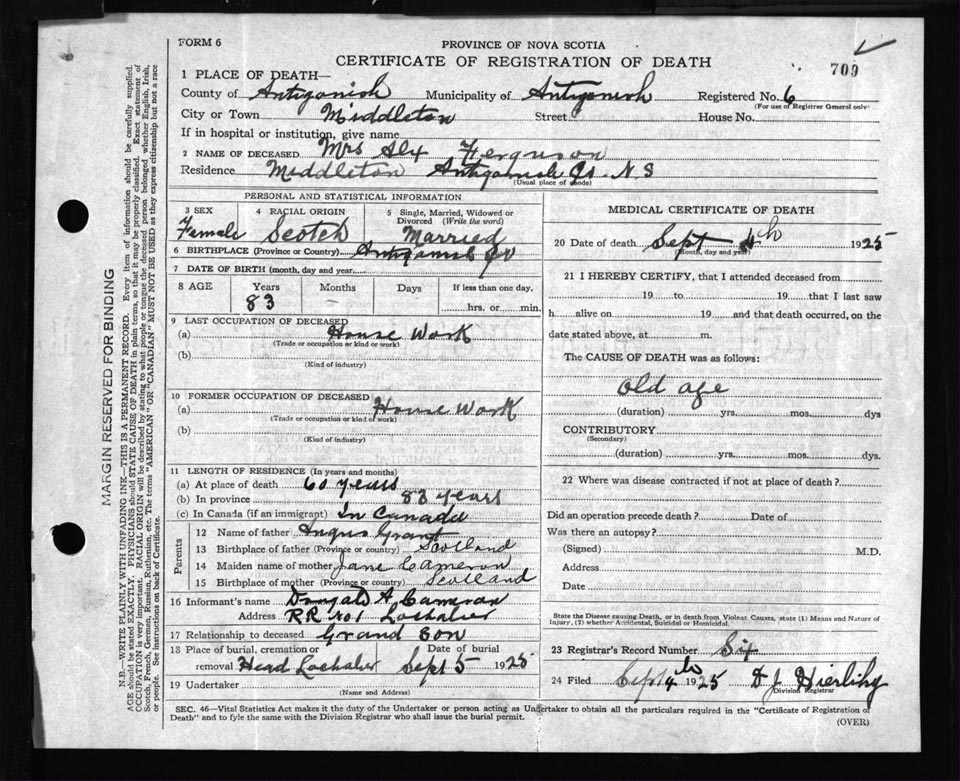 FORM 6
PROVINCE OF NOVA SCOTIA
CERTIFICATE OF REGISTRATION OF DEATH
709
1 PLACE OF DEATH—
County of Antigonish Municipality of Antigonish Registered No. 6
(For use of Registrar General only)
City or Town Middleton Street House No.
If in hospital or institution, give name
2 NAME OF DECEASED Mrs Alx Ferguson
Residence Middleton Antigonish Co. N S
(Usual place of abode)
PERSONAL AND STATISTICAL INFORMATION
3 SEX Female
4 RACIAL ORIGIN Scotch
5 Single, Married, Widowed or Divorced (Write the word) Married
6 BIRTHPLACE (Province or Country) Antigonish
7 DATE OF BIRTH (month, day and year)
8 AGE Years Months Days If less than one day,
83 – hrs. or min.
9 LAST OCCUPATION OF DECEASED
(a) House Work
(Trade or occupation or kind or work)
(b)
(Kind of industry)
10 FORMER OCCUPATION OF DECEASED
(a) House Work
(Trade or occupation or kind of work)
(b)
(Kind of industry)
11 LENGTH OF RESIDENCE (In years and months)
(a) At place of death 60 years
(b) In province 83 years
(c) In Canada (if an immigrant) In Canada
Parents
12 Name of father Angus Grant
13 Birthplace of father (Province or country) Scotland
14 Maiden name of mother Jane Cameron
15 Birthplace of mother (Province or country) Scotland
16 Informant's name Dougald A Cameron
Address RR No 1 Lochaber
17 Relationship to deceased Grand Son
18 Place of burial, cremation or Date of burial
removal Head Lochaber Sept 5 1925
19 Undertaker
(Name and Address)
MEDICAL CERTIFICATE OF DEATH
20 Date of death Sept 4th 1925
(Month, day and year)
21 I HEREBY CERTIFY, that I attended deceased from
19 to 19 that I last saw
h alive on 19 and that death occurred, on the
date stated above, at m.
The CAUSE OF DEATH was as follows:
Old age
(duration) yrs. mos. dys
CONTRIBUTORY
(Secondary)
(duration) yrs. mos. dys.
22 Where was disease contracted if not at place of death?
Did an operation precede death? Date of
Was there an autopsy?
(Signed) M.D.
Address
Date
State the Disease causing Death, or in death from Violent Causes, state (1) Means and Nature of
Injury, (2) whether Accidental, Suicidal or Homicidal.
23 Registrar's Record Number Six
24 Filed Sept 4th 1925 D J Hierlihy
Division Registrar
SEC. 46—Vital Statistics Act makes it the duty of the Undertaker or person acting as Undertaker to obtain all the particulars required in the "Certificate of Registration of
Death" and to fyle the same with the Division Registrar who shall issue the burial permit.
(OVER)
MARGIN RESERVED FOR BINDING
N.B.—WRITE PLAINLY WITH UNFADING INK—THIS IS A PERMANENT RECORD. Every item of information should be carefully supplied.
AGE should be stated EXACTLY. PHYSICIANS should STATE CAUSE OF DEATH in plain terms, so that it may be properly classified. Exact statement of
OCCUPATION is very important. RACIAL ORIGIN will be described by stating to what people or tongue the deceased person belonged whether English, Irish,
Scotch, French, German, Russian, Ruthenian, etc. The terms "AMERICAN" OR "CANADIAN" MUST NOT BE USED as they express citizenship but not a race
or people. See instructions on back of Certificate.